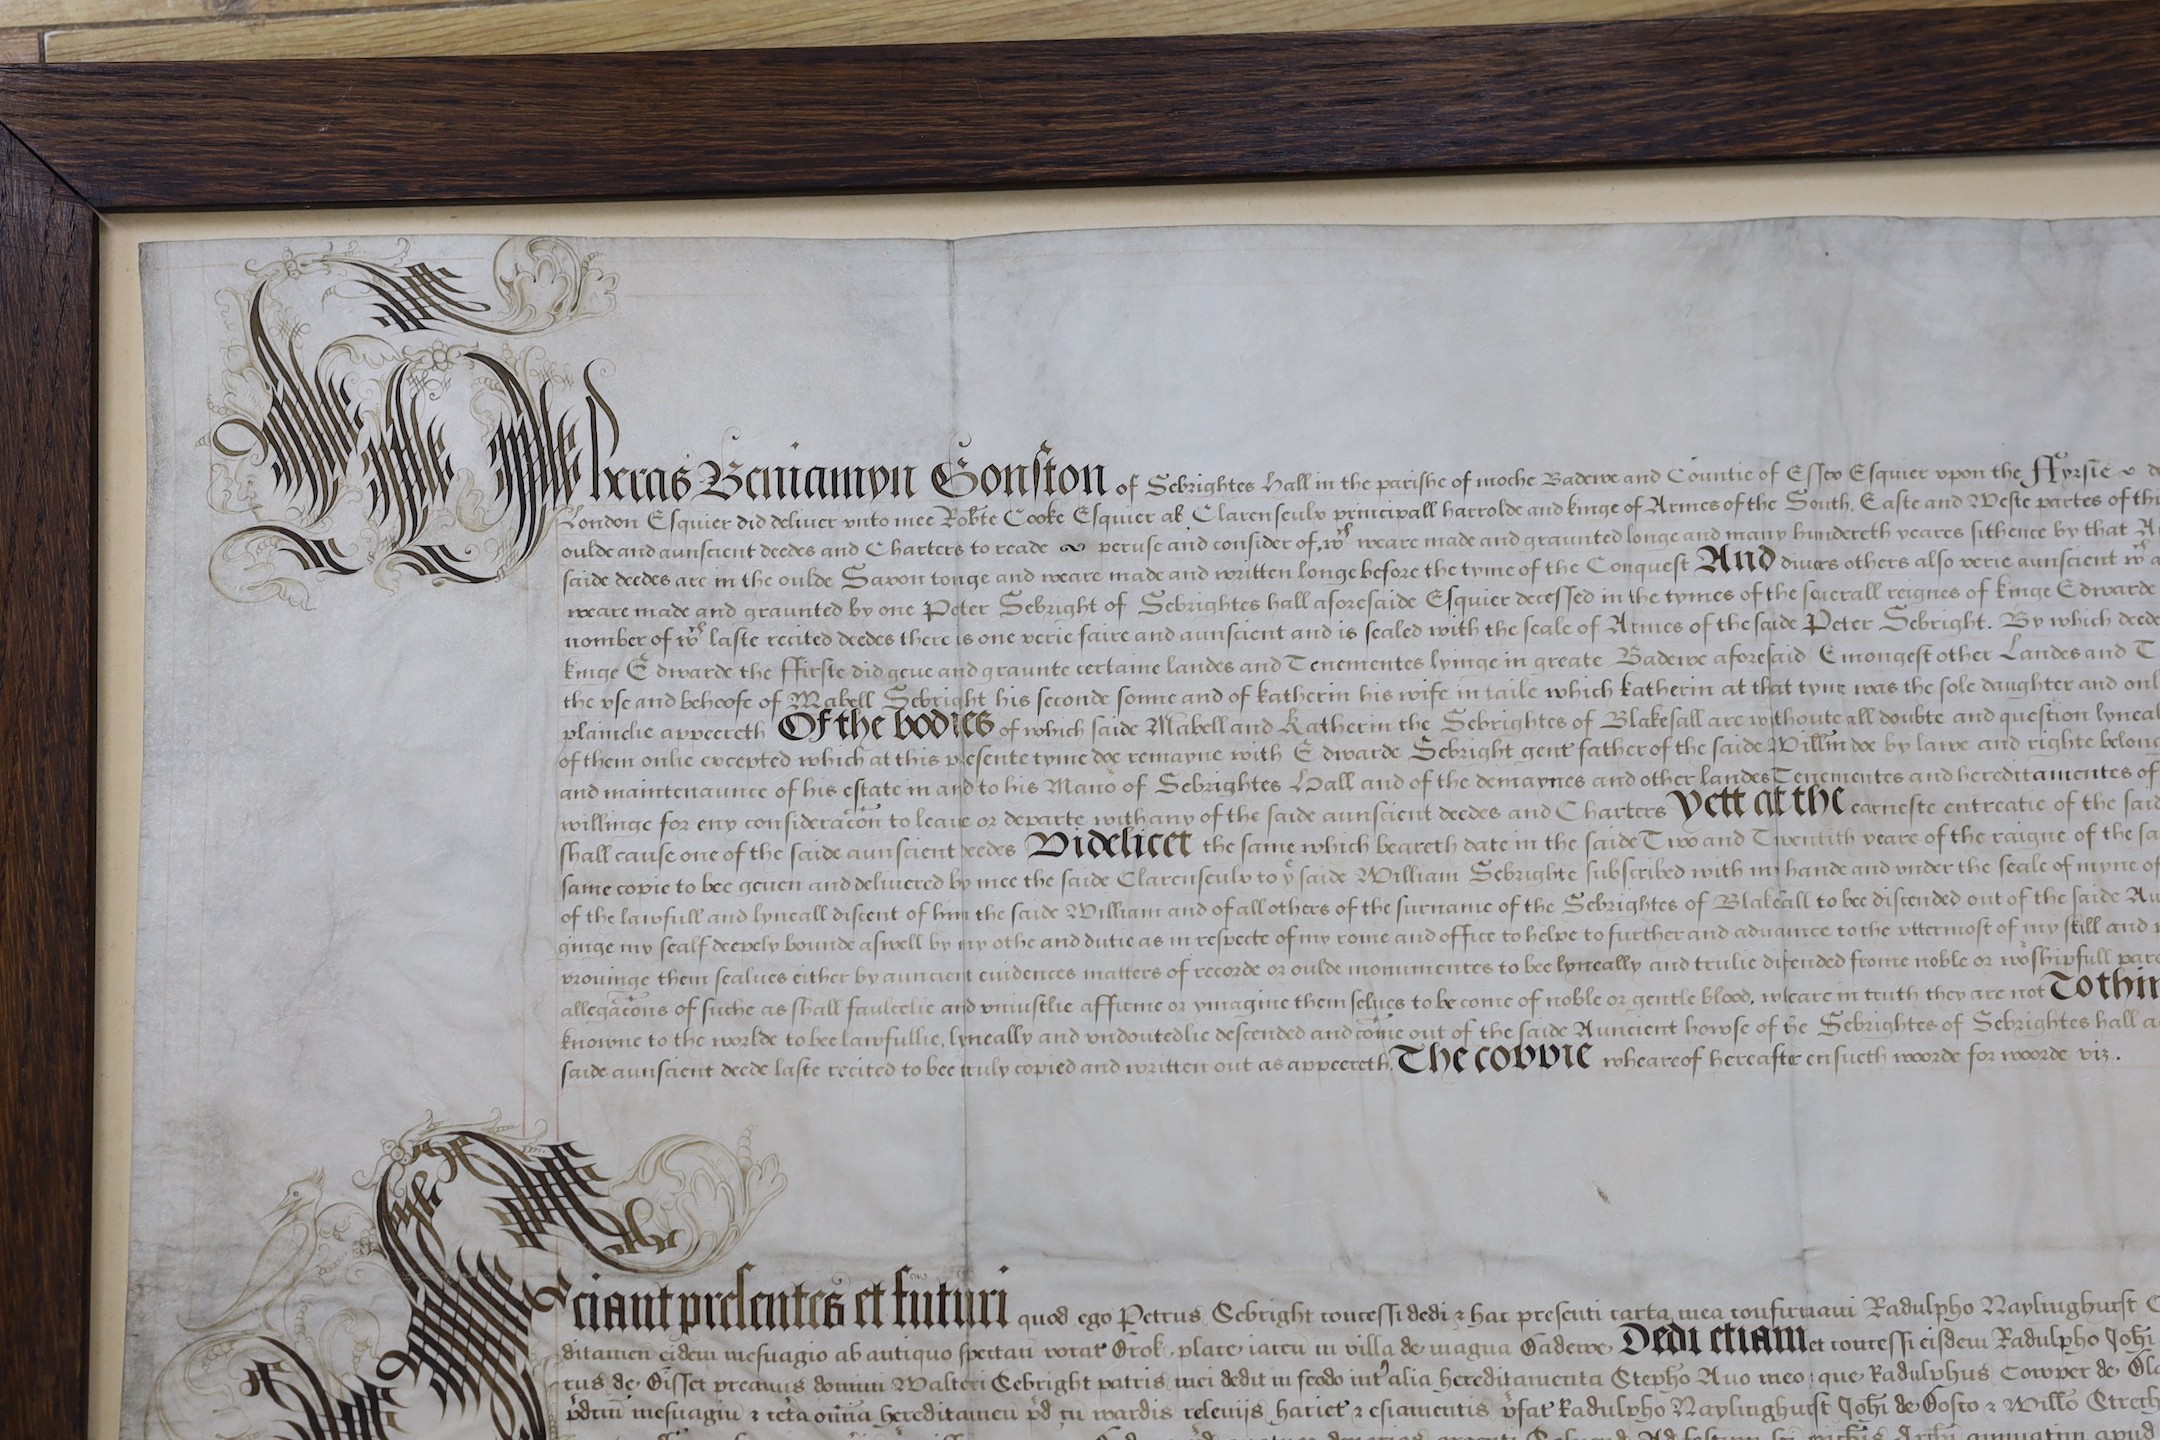 Wheras Beniamyn Gonston of Sebrightes Hall in the parishe of moche Badewe and Countie of Essex Esquier vpon the Fyrste
London Esquier did deliver vnto mee Robte Cooke Esquier als Clarenseulx principall harrolde and kinge of Armes of the South, Easte and Weste partes of
oulde and aunscient deedes and Charters to reade peruse and consider of, wch weare made and graunted longe and many hundereth yeares sithence by that
saide deedes are in the oulde Saxon tonge and weare made and written longe before the tyme of the Conquest And divers others also verie aunscient wch
weare made and graunted by one Peter Sebright of Sebrightes hall aforesaide Esquier decessed in the tymes of the severall reignes of kinge Edwarde
nomber of wch laste recited deedes there is one verie faire and aunscient and is sealed with the seale of Armes of the saide Peter Sebright. By which deede
kinge Edwarde the ffirste did geve and graunte certaine landes and Tenementes lyinge in greate Badewe aforesaid Emongest other Landes and
the vse and behoofe of Mabell Sebright his seconde sonne and of katherin his wife in taile which katherin at that tyme was the sole daughter and
plainelie appeereth Of the bodies of which saide Mabell and Katherin the Sebrightes of Blakesall are withoute all doubte and question
of them onlie excepted which at this presente tyme doe remayne with Edwarde Sebright gent father of the saide Willm doe by lawe and righte
and maintenaunce of his estate in and to his Mano of Sebrightes Hall and of the demaynes and other landes Tenementes and hereditamentes of
willinge for eny consideracon to leave or departe with any of the saide aunscient deedes and Charters Yett at the earneste entreatie of the
shall cause one of the saide aunscient deedes Videlicet the same which beareth date in the saide Two and Twentith yeare of the raigne of the
same copie to bee geven and delivered by mee the saide Clarenseulx to ye saide William Sebrighte subscribed with my hande and vnder the seale of myne
of the lawfull and lyneall discent of him the saide William and of all others of the surname of the Sebrightes of Blakesall to bee discended out of the saide
ginge my sealf deepely bounde aswell by my othe and dutie as in respecte of my rome and office to helpe to further and advaunce to the vttermost of my skill and
provinge them sealves either by auncient evidences matters of recorde or oulde monumentes to bee lyneally and trulie discended frome noble or woshipfull
allegacons of suche as shall faulcelie and vniustlie affirme or ymagine them selves to be come of noble or gentle blood, wheare in truth they are not
knowne to the worlde to bee lawfullie, lyneally and vndoutedlie descended and come out of the saide Auncient howse of the Sebrightes of Sebrightes hall
saide aunscient deede laste recited to bee truly copied and written out as appeereth. The coppie wheareof hereafter ensueth woorde for woorde viz.
Sciant presentes et futuri quod ego Petrus Sebright concessi dedi & hac presenti carta mea confirmavi Radulpho Naylinghurst
ditamen eidem mesuagio ab antiquo spectan vocat Crok place iacen in villa de magna Badewe Dedi etiam et concessi eisdem Radulpho Johi
de Bisset preavus domini Walteri Sebright patris mei dedit in feodo int alia hereditamenta Stepho Avo meo que Radulphus Cowper de
pdcm mesuagiu & ceta omnia hereditamen pd cu wardis relevijs hariet & esiamentis pfat Radulpho Naylinghurst Johi de Bosco & Willo